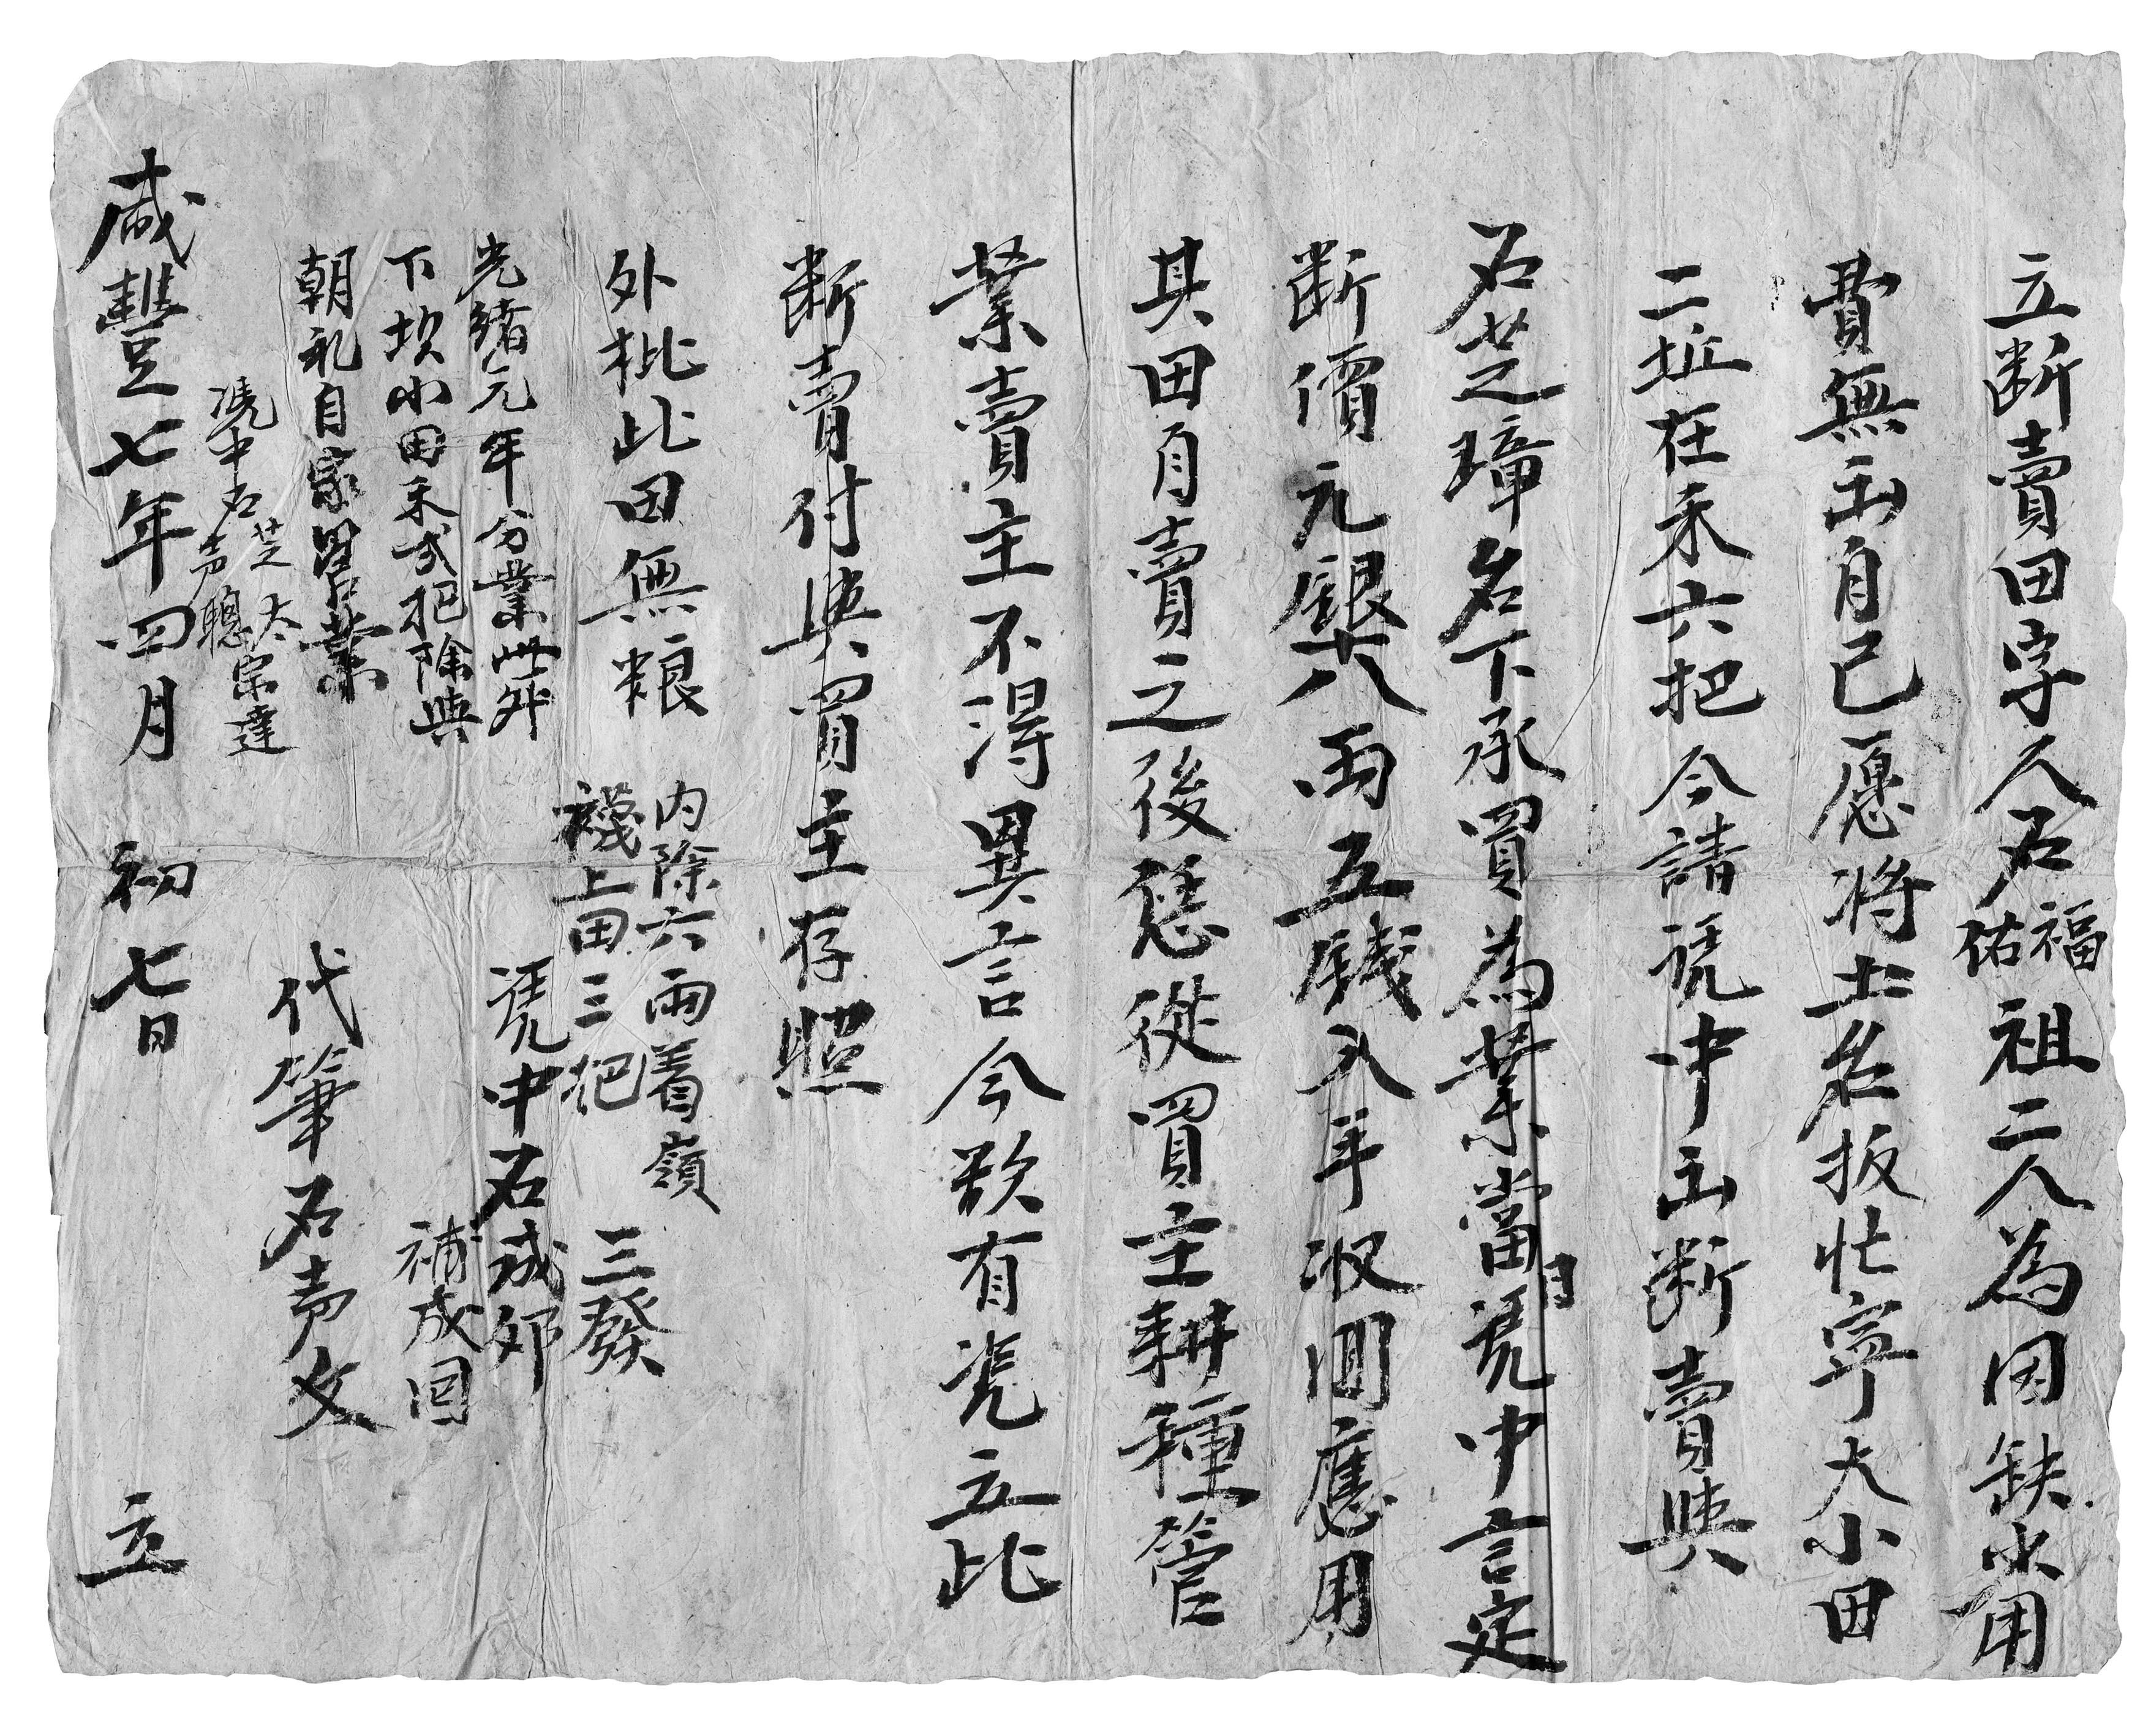 立断賣田字人石福佑祖二人為因缺少用
費無出自己愿将土名扳忙寧大小田
二坵在禾六把今請凴中出断賣與
石芝璋名下承買為業當日凴中言定
断價元銀十八両五錢入手收囬應用
其田自賣之後恁從買主耕種管
業賣主不淂異言今欲有凴立此
断賣付與買主存照
外批此田無粮
内除六両着嶺
禨上田三把
三發
凴中石成邦
補成囬
光緒元年分業此外
下坎小田禾弍把除與
朝礼自家管業
代筆石声文
凴中石芝太宗達
声聰
咸豐七年四月初七日立